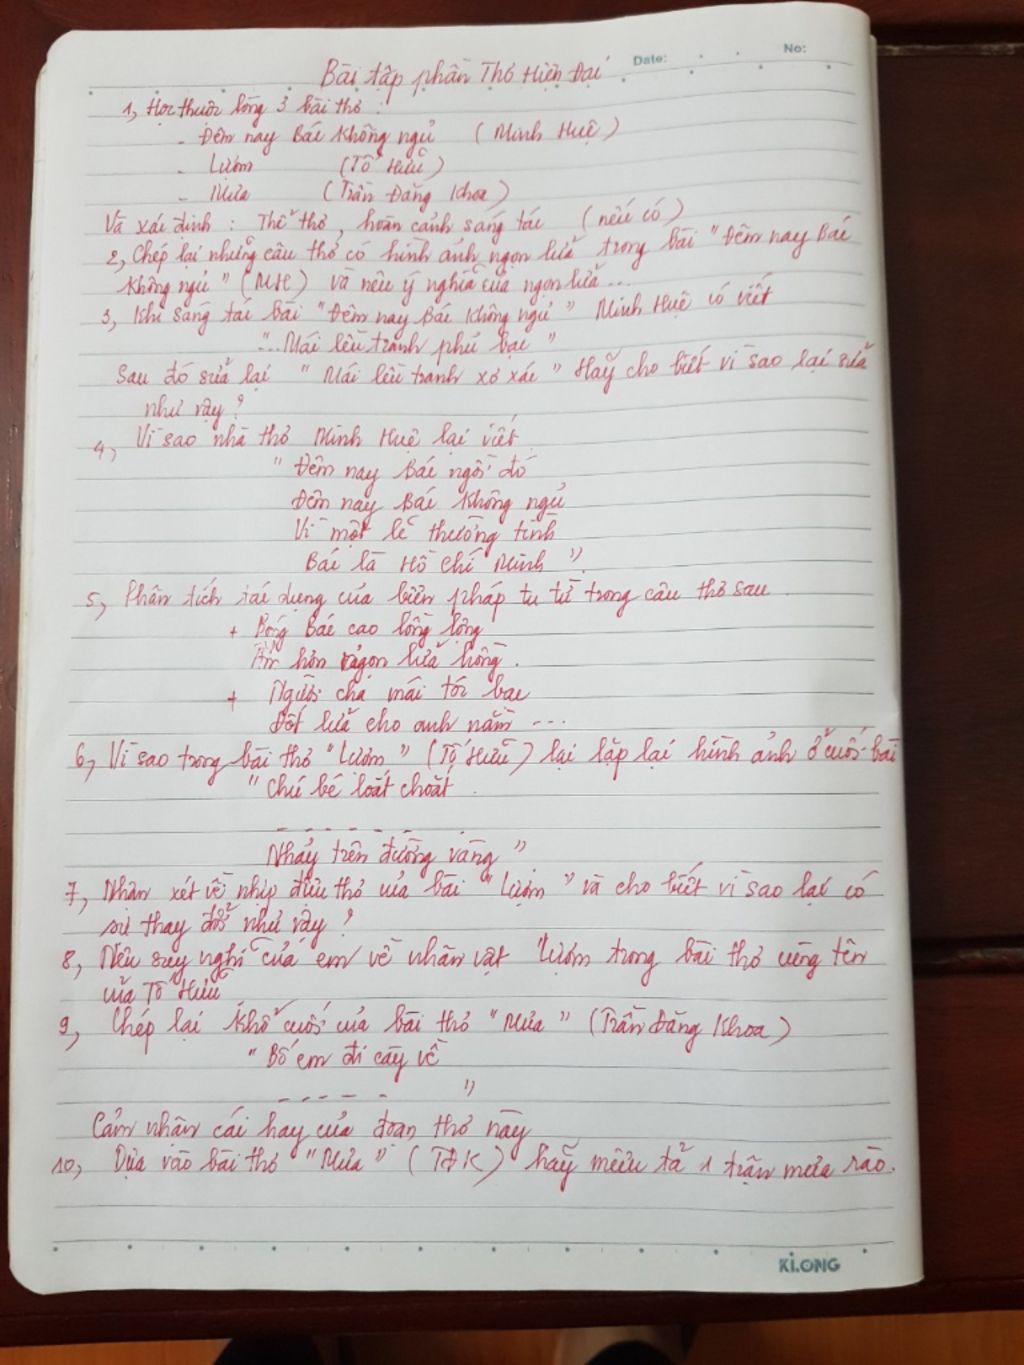 Date:
No:
Bài tập phần Thơ Hiện Đại
1, Học thuộc lòng 3 bài thơ :
- Đêm nay Bác không ngủ ( Minh Huệ )
- Lượm (Tố Hữu)
- Mưa (Trần Đăng Khoa)
Và xác định : Thể thơ, hoàn cảnh sáng tác (nếu có)
2, Chép lại những câu thơ có hình ảnh ngọn lửa trong bài "Đêm nay Bác
không ngủ" (MH) và nêu ý nghĩa của ngọn lửa ...
3, Khi sáng tác bài "Đêm nay Bác không ngủ" Minh Huệ có viết
"...Mái lều tranh phủ bạc"
Sau đó sửa lại "Mái lều tranh xơ xác" Hãy cho biết vì sao lại sửa
như vậy ?
4, Vì sao nhà thơ Minh Huệ lại viết
"Đêm nay Bác ngồi đó
Đêm nay Bác không ngủ
Vì một lẽ thường tình
Bác là Hồ Chí Minh".
5, Phân tích tác dụng của biện pháp tu từ trong câu thơ sau
+ Bóng Bác cao lồng lộng
Ấm hơn ngọn lửa hồng.
+ Người cha mái tóc bạc
Đốt lửa cho anh nằm ...
6, Vì sao trong bài thơ "Lượm" (Tố Hữu) lại lặp lại hình ảnh ở cuối bài
"Chú bé loắt choắt
- - - - - -
Nhảy trên đường vàng"
7, Nhận xét về nhịp điệu thơ của bài "Lượm" và cho biết vì sao lại có
sự thay đổi như vậy ?
8, Nêu suy nghĩ của em về nhân vật Lượm trong bài thơ cùng tên
của Tố Hữu
9, Chép lại khổ cuối của bài thơ "Mưa" (Trần Đăng Khoa)
"Bố em đi cày về
- - - - - "
Cảm nhận cái hay của đoạn thơ này
10, Dựa vào bài thơ "Mưa" (TĐK) hãy miêu tả 1 trận mưa rào.
KLONG